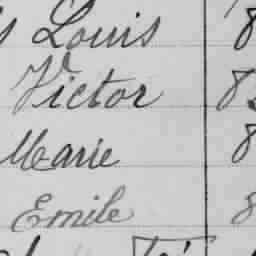 Louis 8
Victor 8
Marie 8
Emile 8